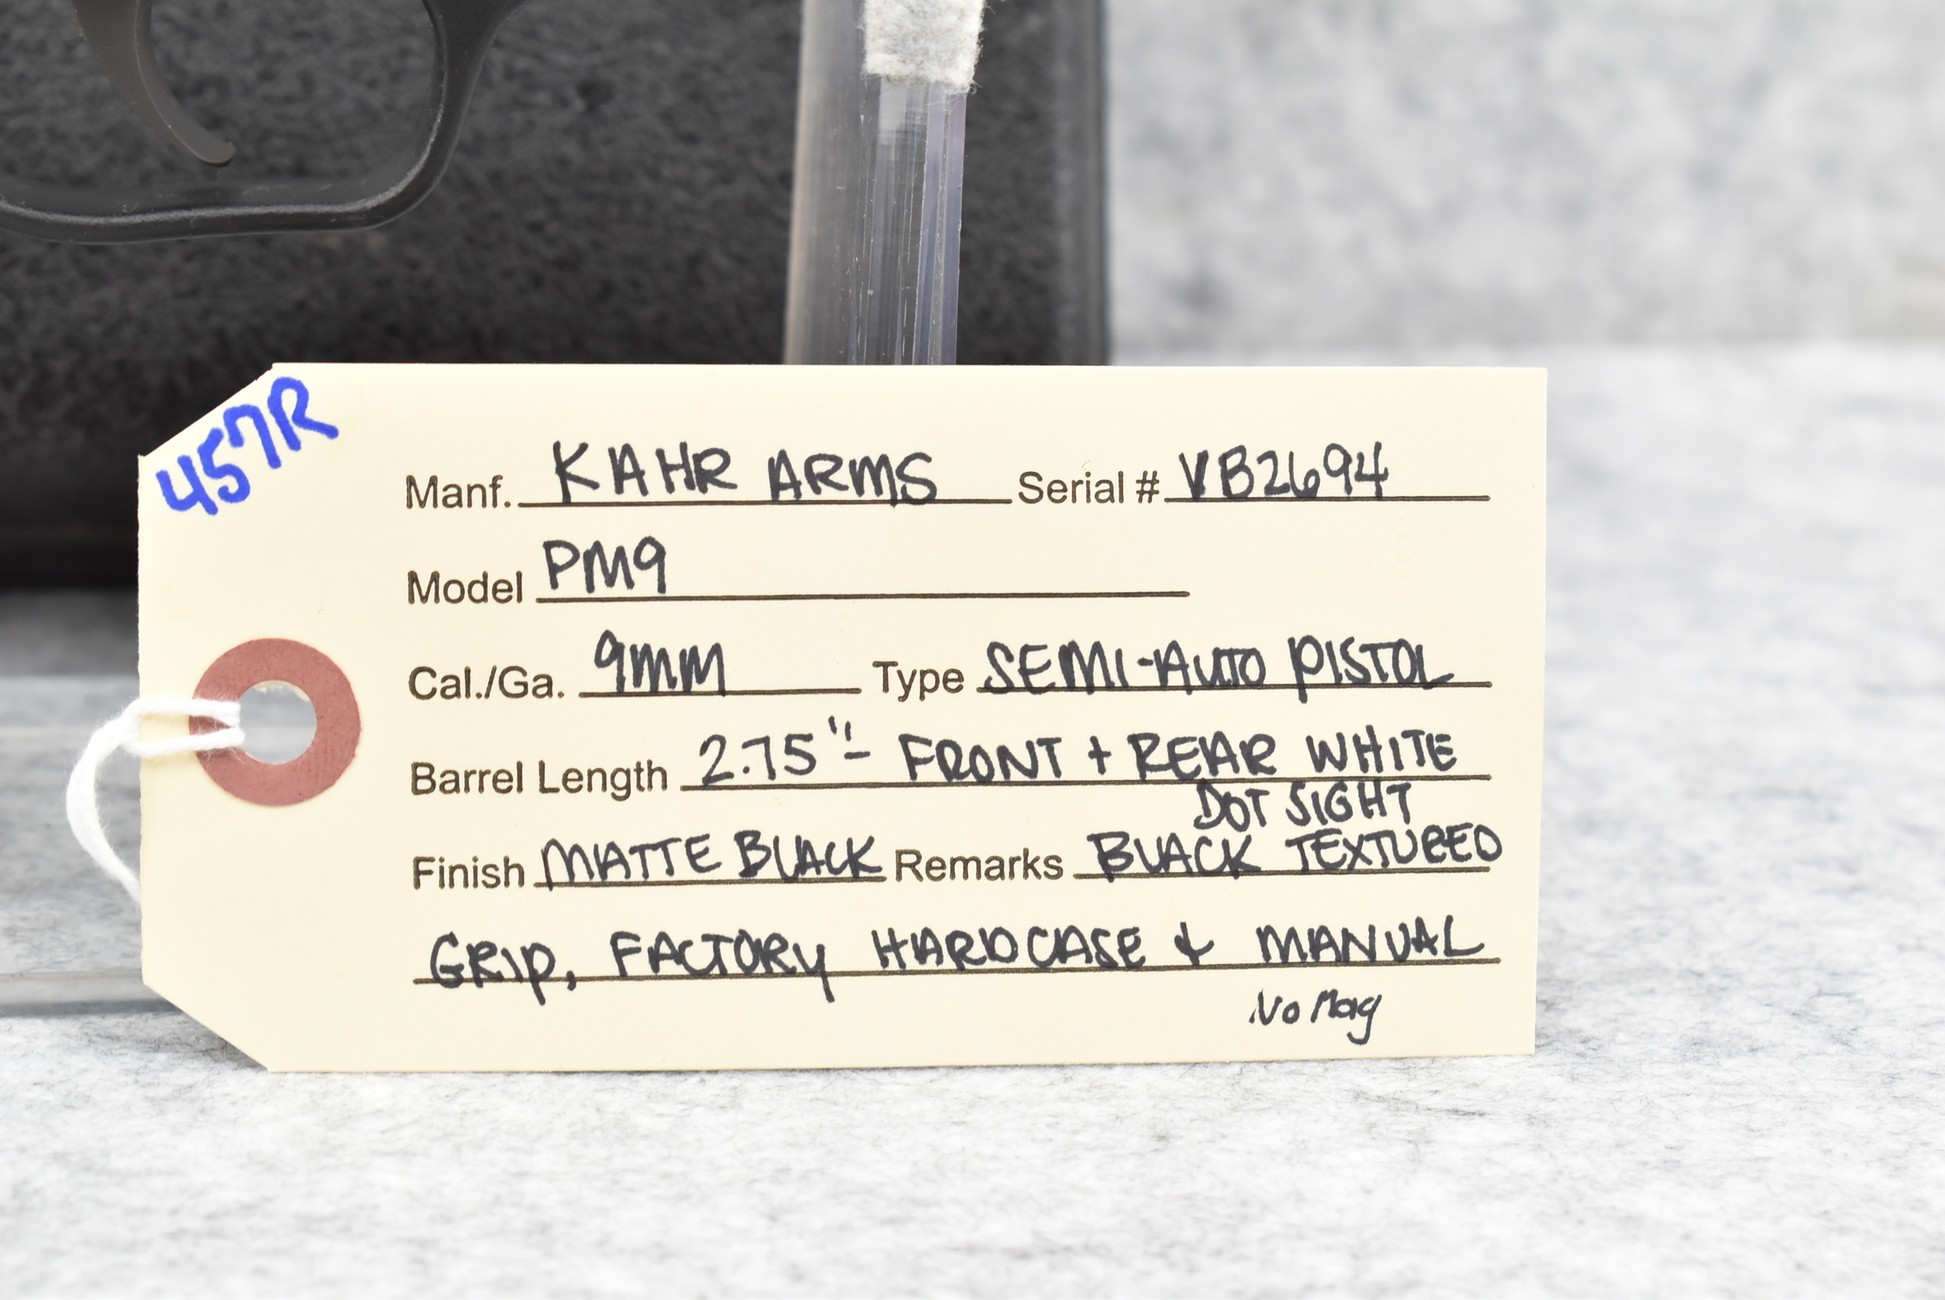 457R
Manf. KAHR ARMS Serial # VB2694
Model PM9
Cal./Ga. 9MM Type SEMI-AUTO PISTOL
Barrel Length 2.75" - FRONT + REAR WHITE
DOT SIGHT
Finish MATTE BLACK Remarks BLACK TEXTURED
GRIP, FACTORY HARDCASE & MANUAL
No Mag